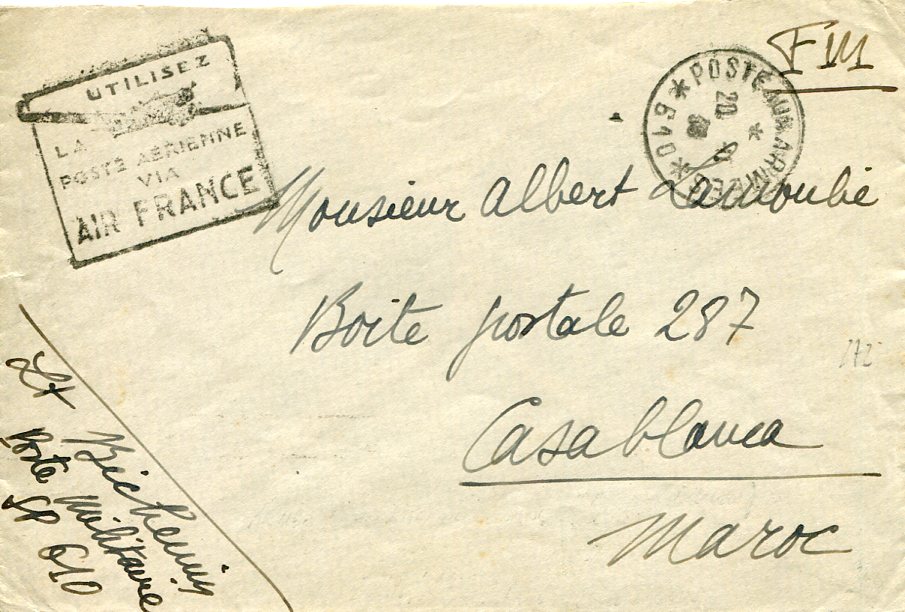 UTILISEZ
LA
POSTE AÉRIENNE
VIA
AIR FRANCE
FM
* POSTE AUX ARMÉES * 610
20
Monsieur Albert Lamoubié
Boite postale 287
Casablanca
Maroc
Lt
Poste Militaire
SP 610